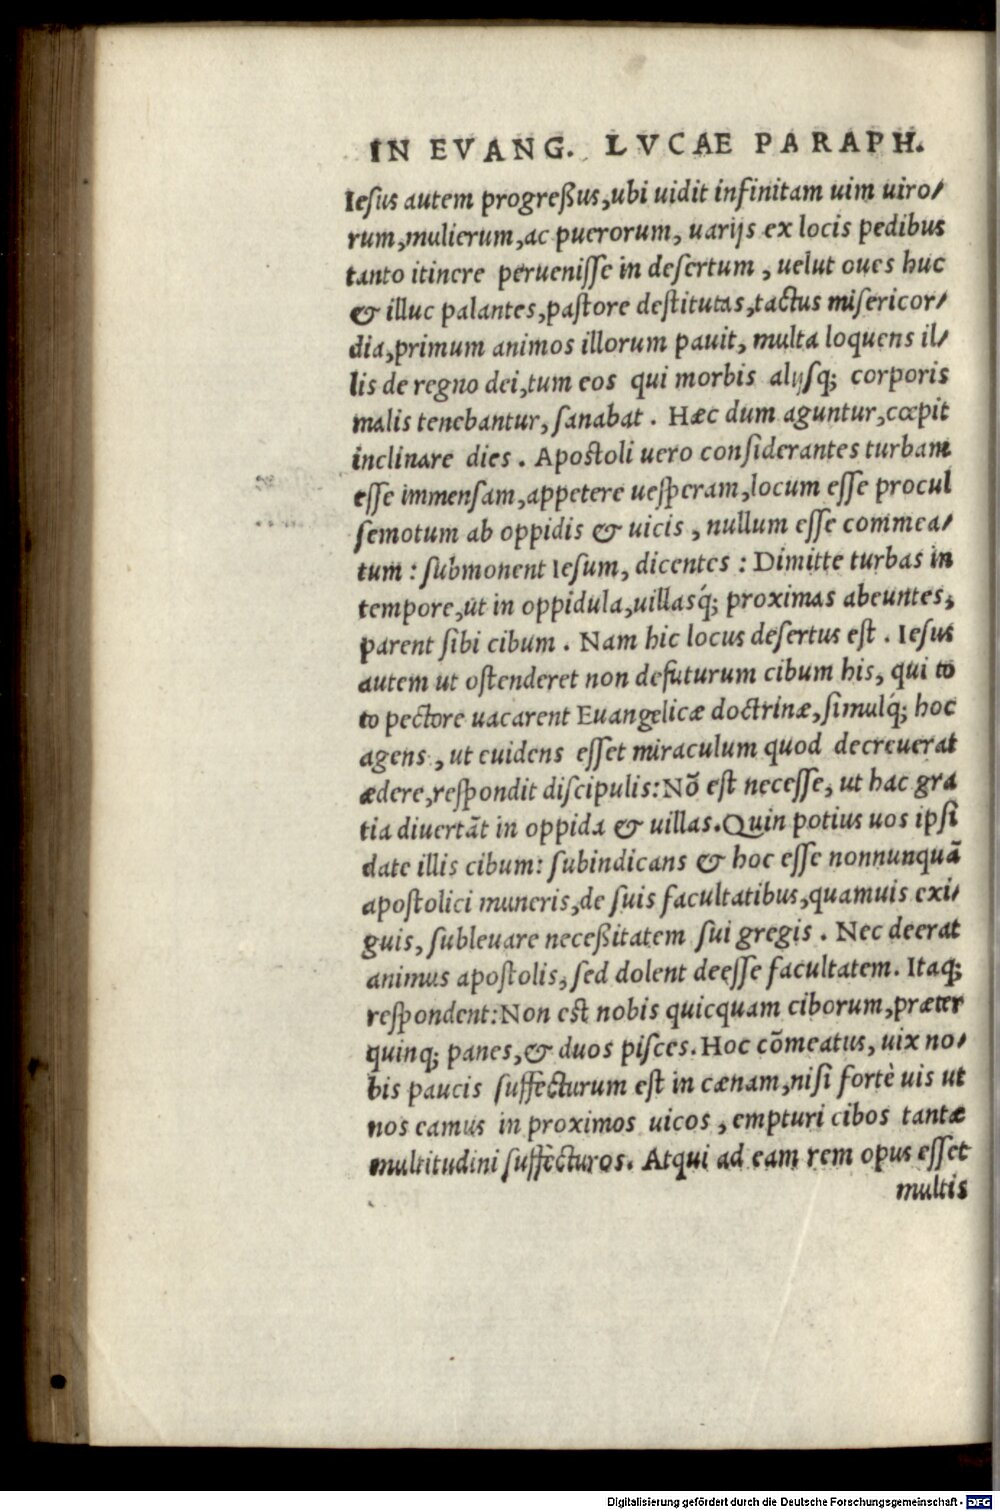 IN EVANG. LVCAE PARAPH.
Iesus autem progreßus, ubi uidit infinitam uim uiro/
rum, mulierum, ac puerorum, uarijs ex locis pedibus
tanto itinere peruenisse in desertum, uelut oues huc
& illuc palantes, pastore destitutas, tactus misericor/
dia, primum animos illorum pauit, multa loquens il/
lis de regno dei, tum eos qui morbis alijsq; corporis
malis tenebantur, sanabat. Hæc dum aguntur, cœpit
inclinare dies. Apostoli uero considerantes turbam
esse immensam, appetere uesperam, locum esse procul
semotum ab oppidis & uicis, nullum esse commea/
tum: submonent Iesum, dicentes: Dimitte turbas in
tempore, ut in oppidula, uillasq́; proximas abeuntes,
parent sibi cibum. Nam hic locus desertus est. Iesus
autem ut ostenderet non defuturum cibum his, qui to
to pectore uacarent Euangelicæ doctrinæ, simulq́; hoc
agens, ut euidens esset miraculum quod decreuerat
ædere, respondit discipulis: Nõ est necesse, ut hac gra
tia diuertãt in oppida & uillas. Quin potius uos ipsi
date illis cibum: subindicans & hoc esse nonnunquã
apostolici muneris, de suis facultatibus, quamuis exi/
guis, subleuare neceßitatem sui gregis. Nec deerat
animus apostolis, sed dolent deesse facultatem. Itaq;
respondent: Non est nobis quicquam ciborum, præter
quinq; panes, & duos pisces. Hoc cõmeatus, uix no/
bis paucis suffecturum est in cænam, nisi fortè uis ut
nos eamus in proximos uicos, empturi cibos tantæ
multitudini suffecturos. Atqui ad eam rem opus esset
multis
Digitalisierung gefördert durch die Deutsche Forschungsgemeinschaft - DFG